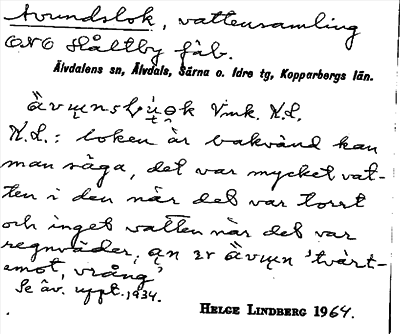 Avundslok, vattensamling
ONO Håltby fäb.
Älvdalens sn, Älvdals, Särna o. Idre tg, Kopparbergs län.
Vmk. N.L.
N.L.: loken är bakvänd kan
man säga, det var mycket vat-
ten i den när det var torrt
och inget vatten när det var
regnväder, an er 'tvärt-
emot, vrång'
Se äv. uppt. 1934.
HELGE LINDBERG 1964.